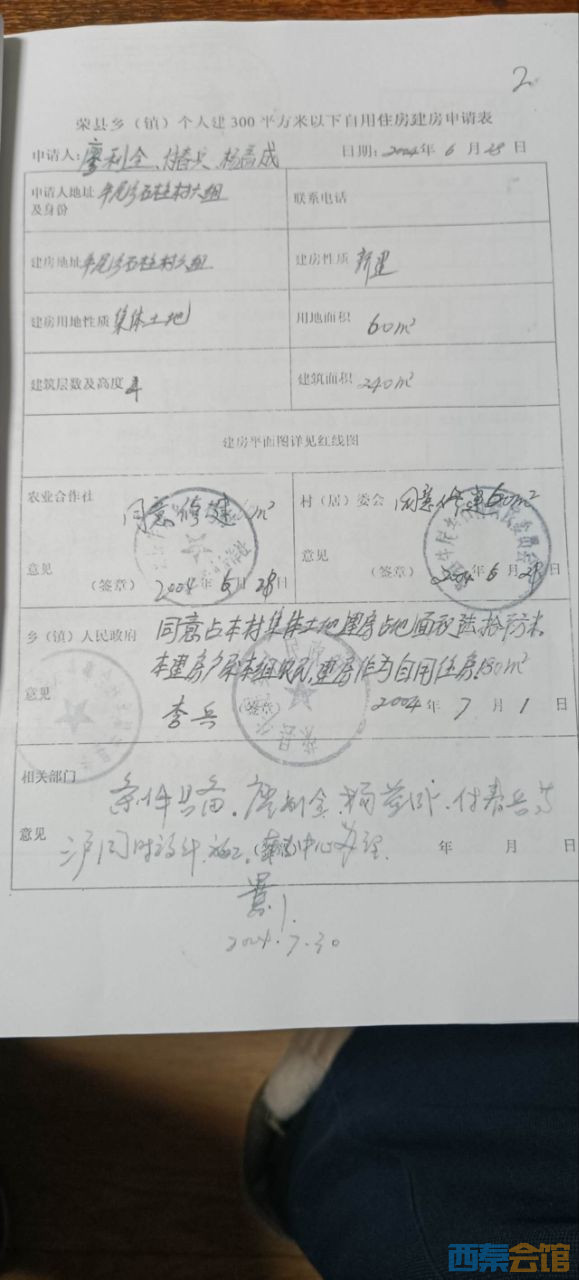 2
荣县乡（镇）个人建300平方米以下自用住房建房申请表
申请人: 廖利全、付春兵、杨 成 日期: 2004年 6 月 28 日
申请人地址 石柱村六组 联系电话
及身份
建房地址 石柱村六组 建房性质 新建
建房用地性质 集体土地 用地面积 60m²
建筑层数及高度 4 建筑面积 240m²
建房平面图详见红线图
农业合作社 同意修建 m² 村（居）委会 同意修建60m²
意见 意见
（签章） 2004年 6 月 28 日 （签章） 2004年 6 月 28 日
乡（镇）人民政府 同意占本村集体土地建房占地面积陆拾平方米。
本建房户 本组农民，建房作为自用住房 m²
意见 李兵 （签章） 2004 年 7 月 1 日
相关部门 条件具备。廖利全、杨 、付春兵等
意见 三户同时设计、施工， 中心办理. 年 月 日
2004.7.30
西秦会馆